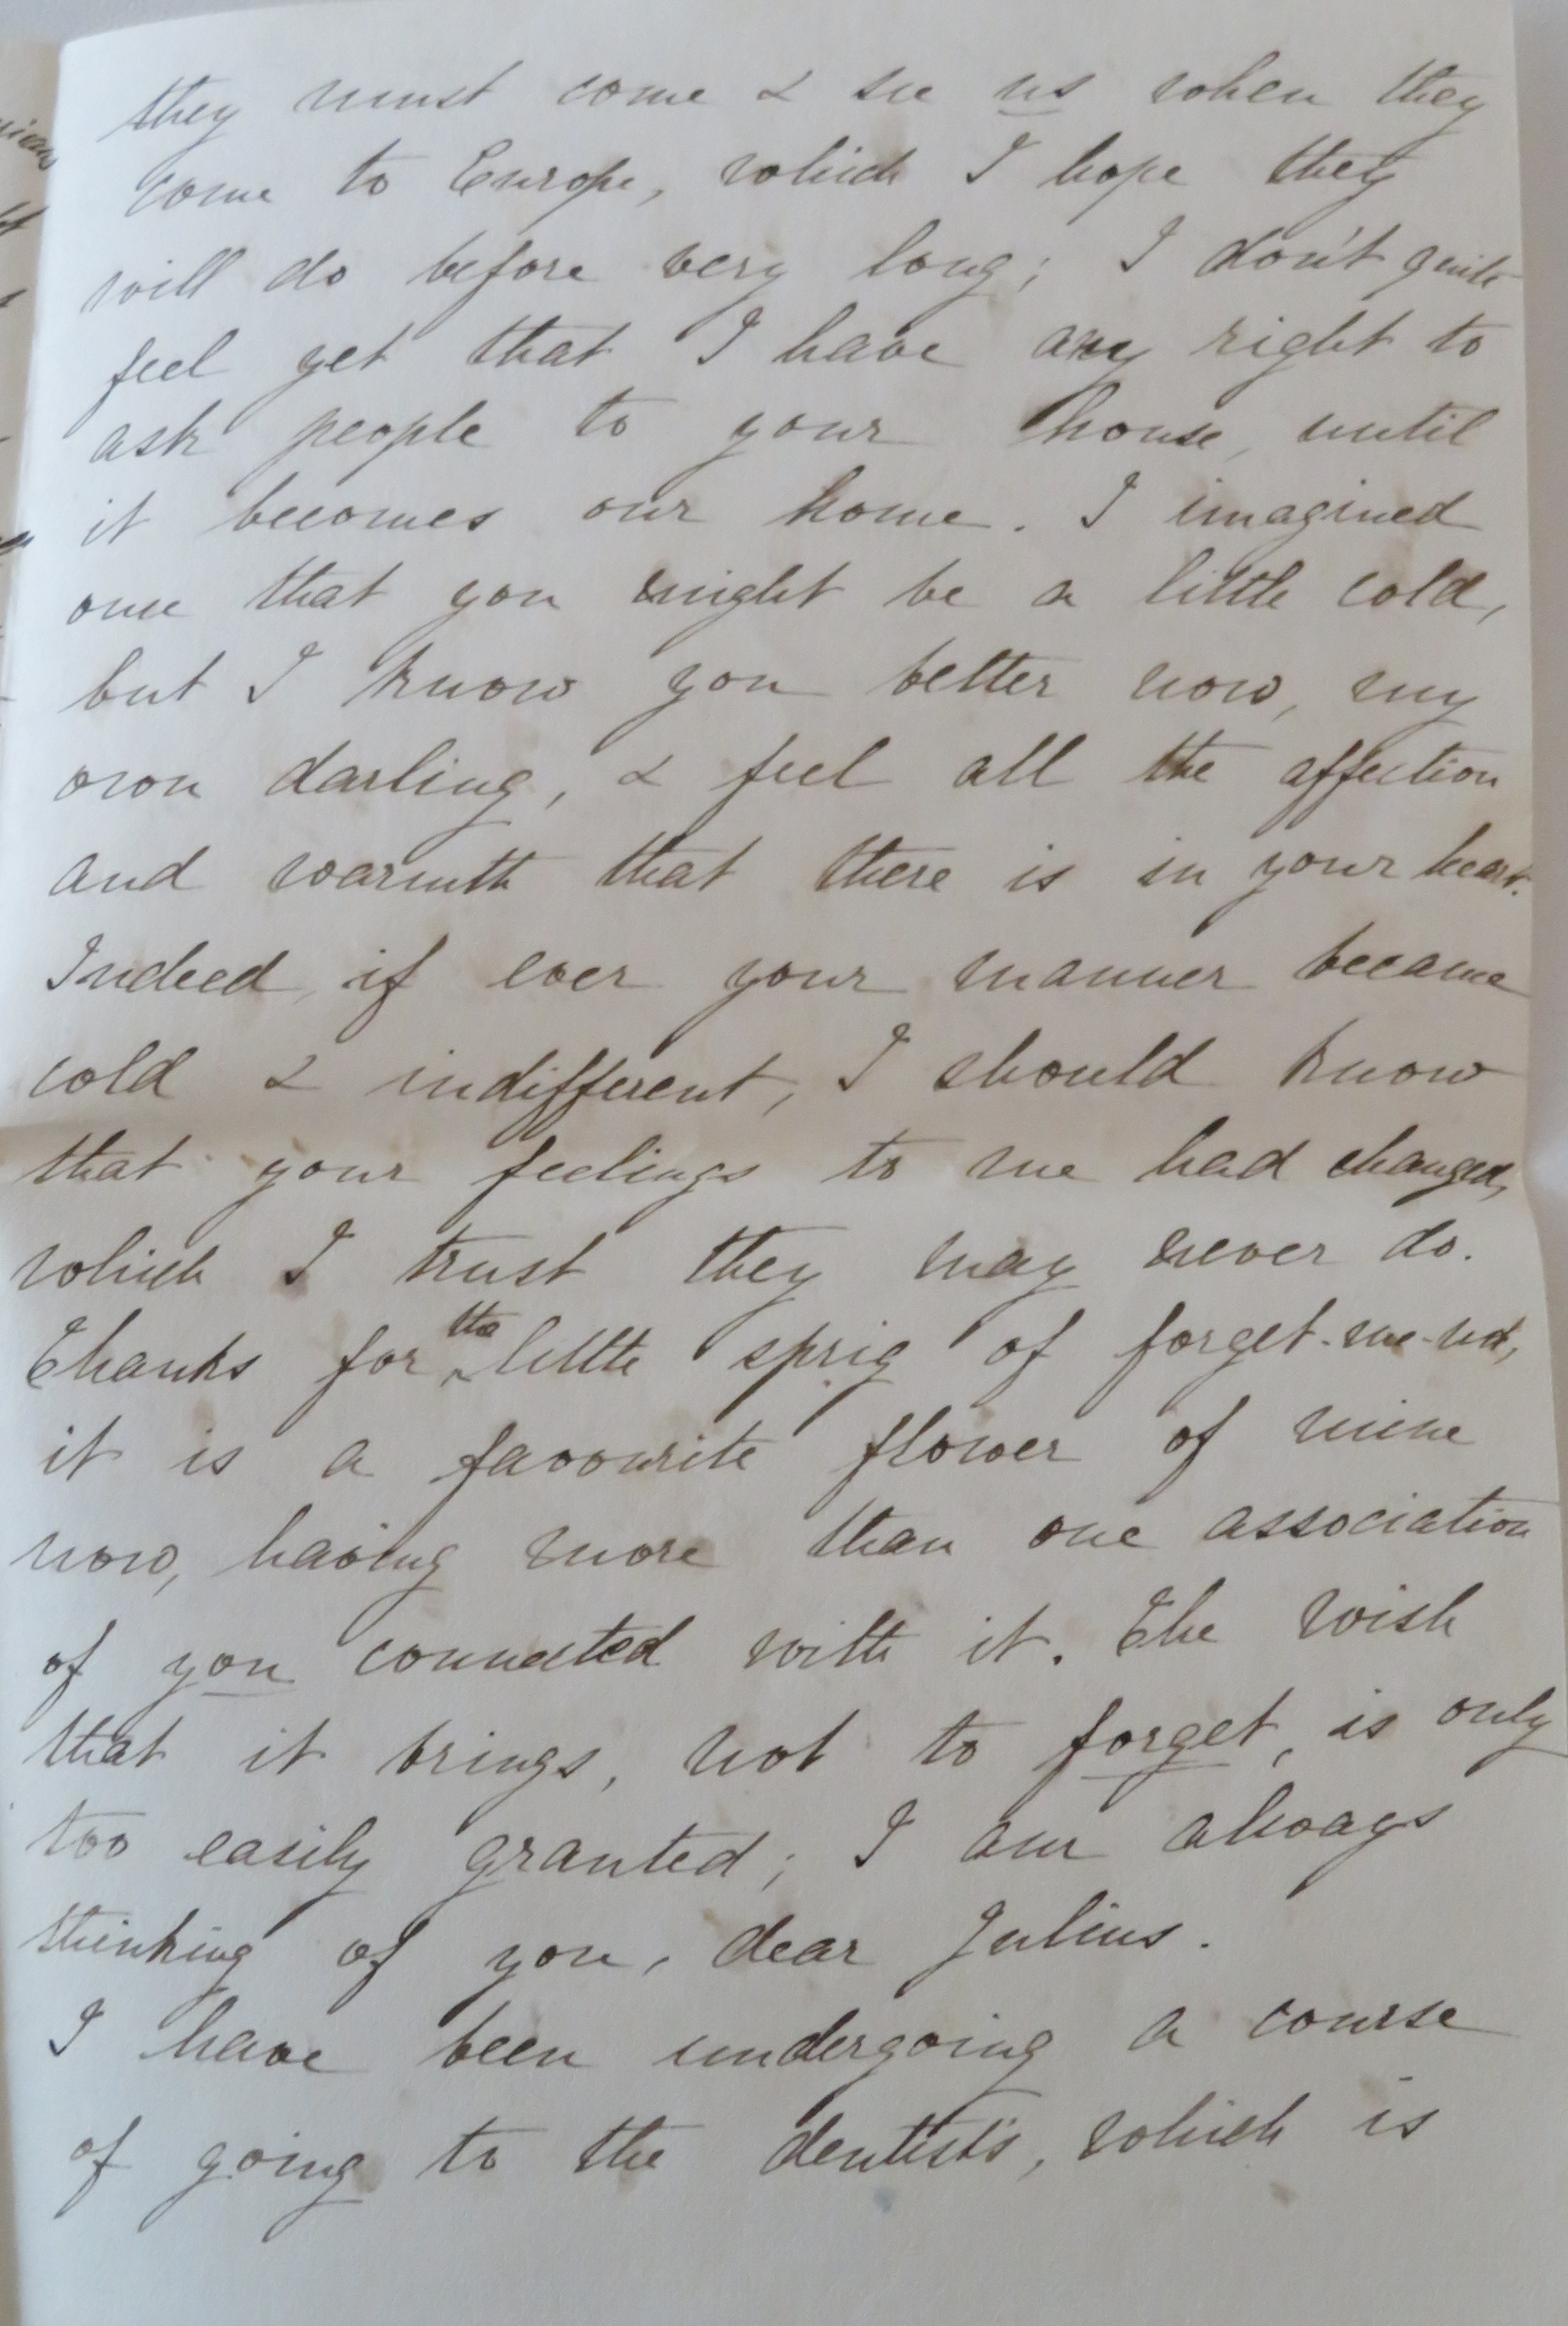 they must come & see us when they
come to Europe, which I hope they
will do before very long; I don't quite
feel yet that I have any right to
ask people to your house, until
it becomes our home. I imagined
once that you might be a little cold,
but I know you better now, my
own darling, & feel all the affection
and warmth that there is in your heart.
Indeed, if ever your manner became
cold & indifferent, I should know
that your feelings to me had changed,
which I trust they may never do.
Thanks for the little sprig of forget-me-not,
it is a favourite flower of mine
now, having more than one association
of you connected with it. The wish
that it brings, not to forget, is only
too easily granted; I am always
thinking of you, dear Julius.
I have been undergoing a course
of going to the dentist's, which is